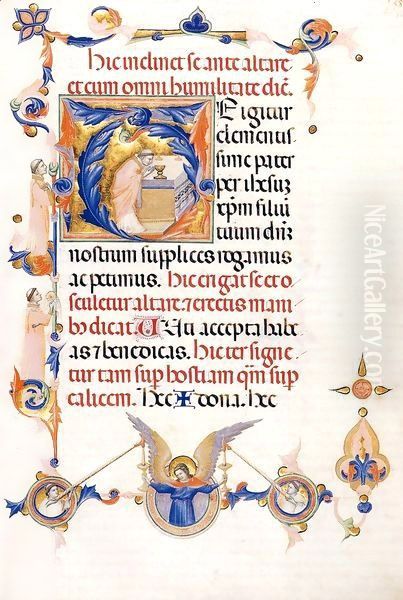 Hic inclinet se ante altare
et cum omni humilitate dic̄.
Te igitur
clementis
sime pater
per ihesuz
xp̄m filiū
tuum dn̄z
nostrum supplices rogamus
ac petimus. Hic erigat se et o
sculetur altare. ⁊ erectis mani
bꝫ dicat. Uti accepta habe
as ⁊ benedicas. Hic ter signe
tur tam sup̄ hostiam qm̄ sup̄
calicem. Hec ✠ dona. hec
NiceArtGallery.com